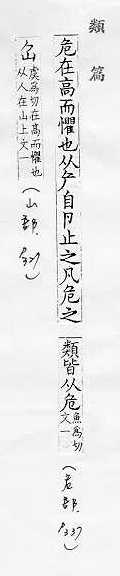 類篇
危在高而懼也从厃自卪止之凡危之類皆从危魚為切文一(危部 P337)
厃虞為切在高而懼也从人在山上文一(山部 P327)